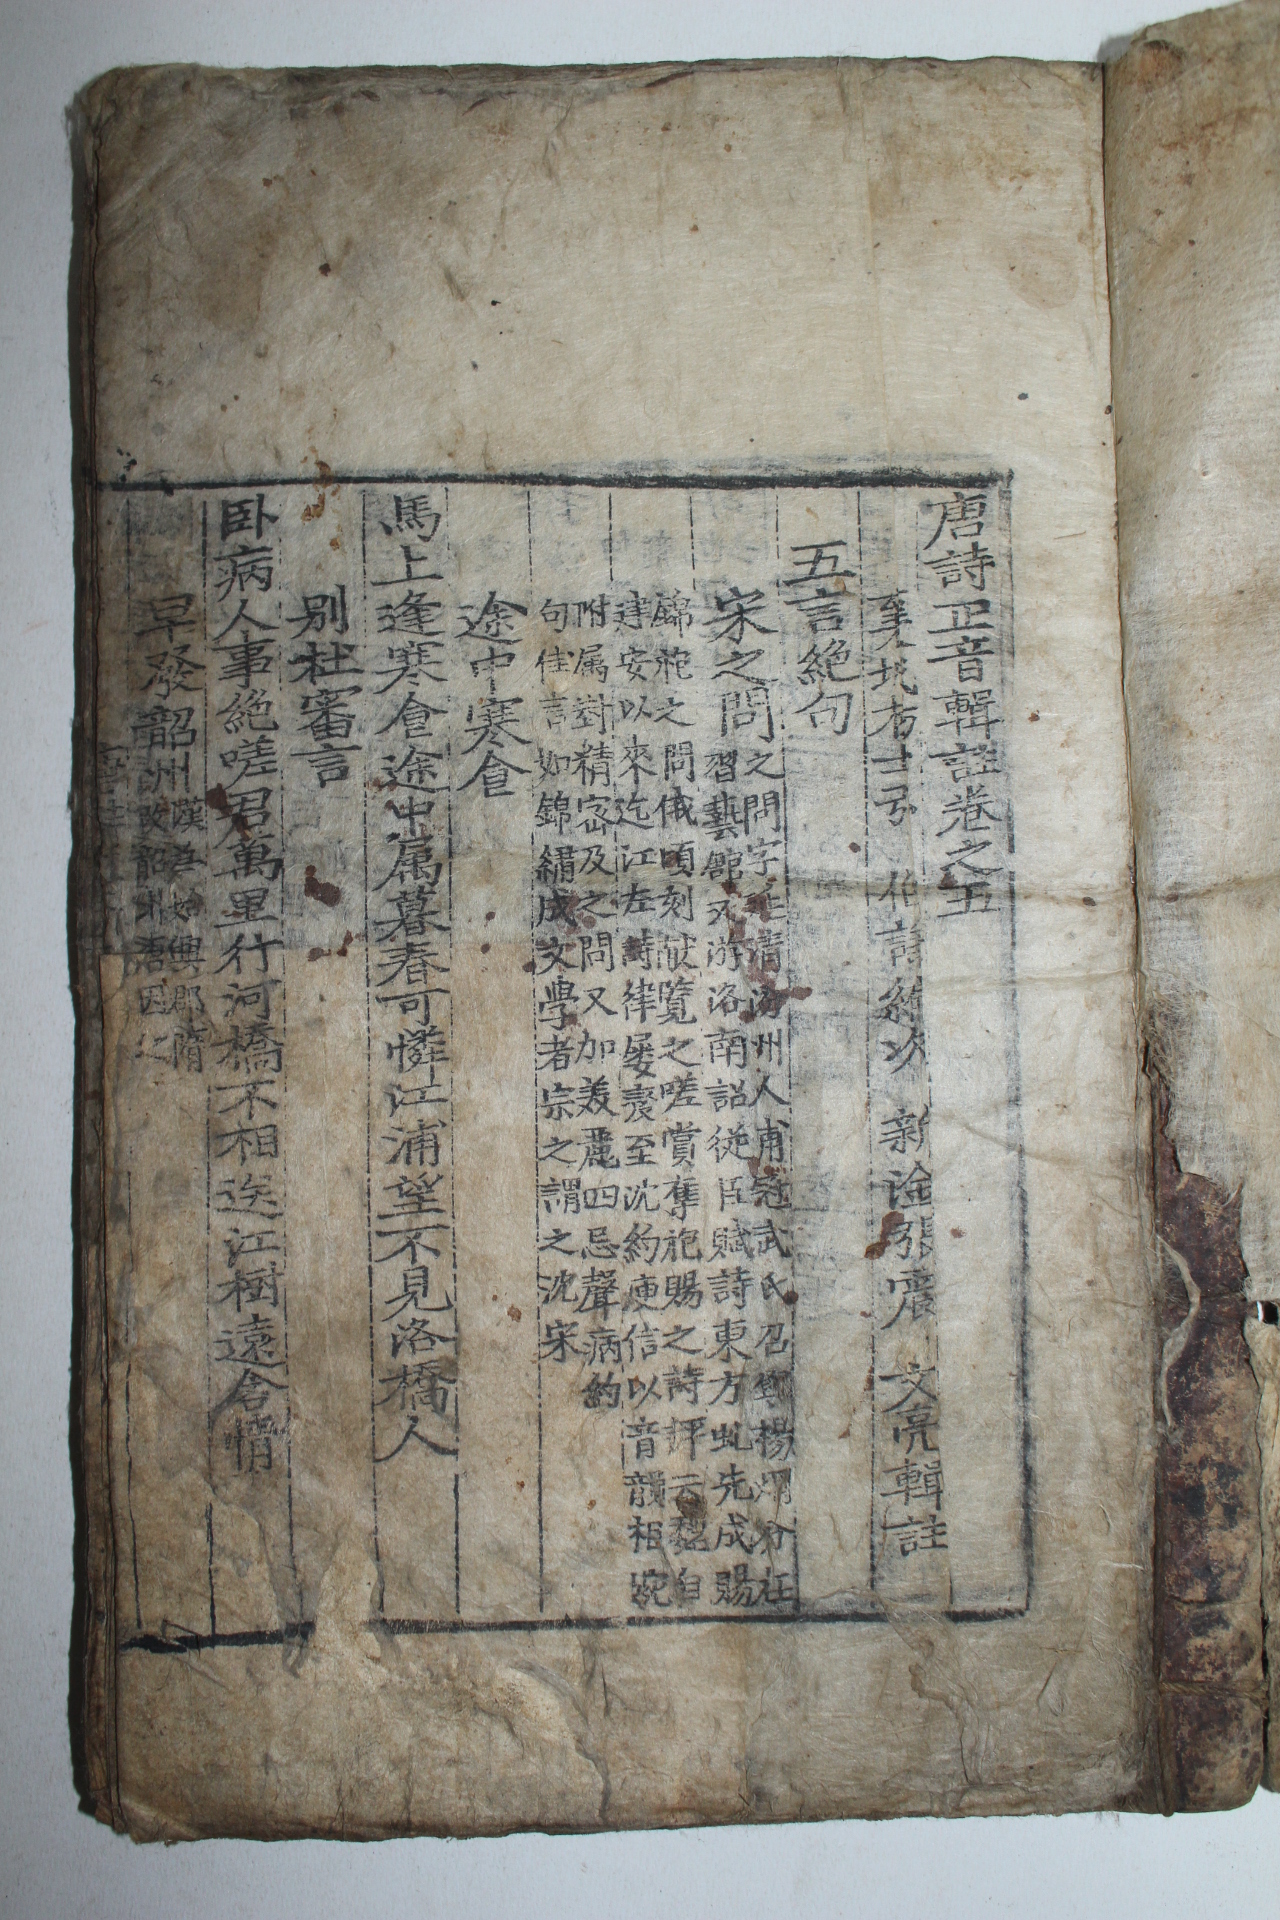 唐詩正音輯註卷之五
襄城楊士弘 伯謙編次 新淦張震 文亮輯註
五言絶句
宋之問
之問字延清汾州人甫冠武氏召與楊炯分在
習藝館又游洛南詔從臣賦詩東方虬先成賜
錦袍之問俄頃刻献覧之嗟賞奪袍賜之詩評云魏自
建安以來迄江左詩律屡变至沈約庾信以音韻相婉
附属對精宻及之問又加美麗囬忌聲病約
句佳言如錦繡成文學者宗之謂之沈宋
途中寒食
馬上逢寒食途中属暮春可憐江浦望不見洛橋人
别杜審言
卧病人事絶嗟君萬里行河橋不相送江樹遠含情
早發韶州
漢為始興郡隋
改韶州唐因之